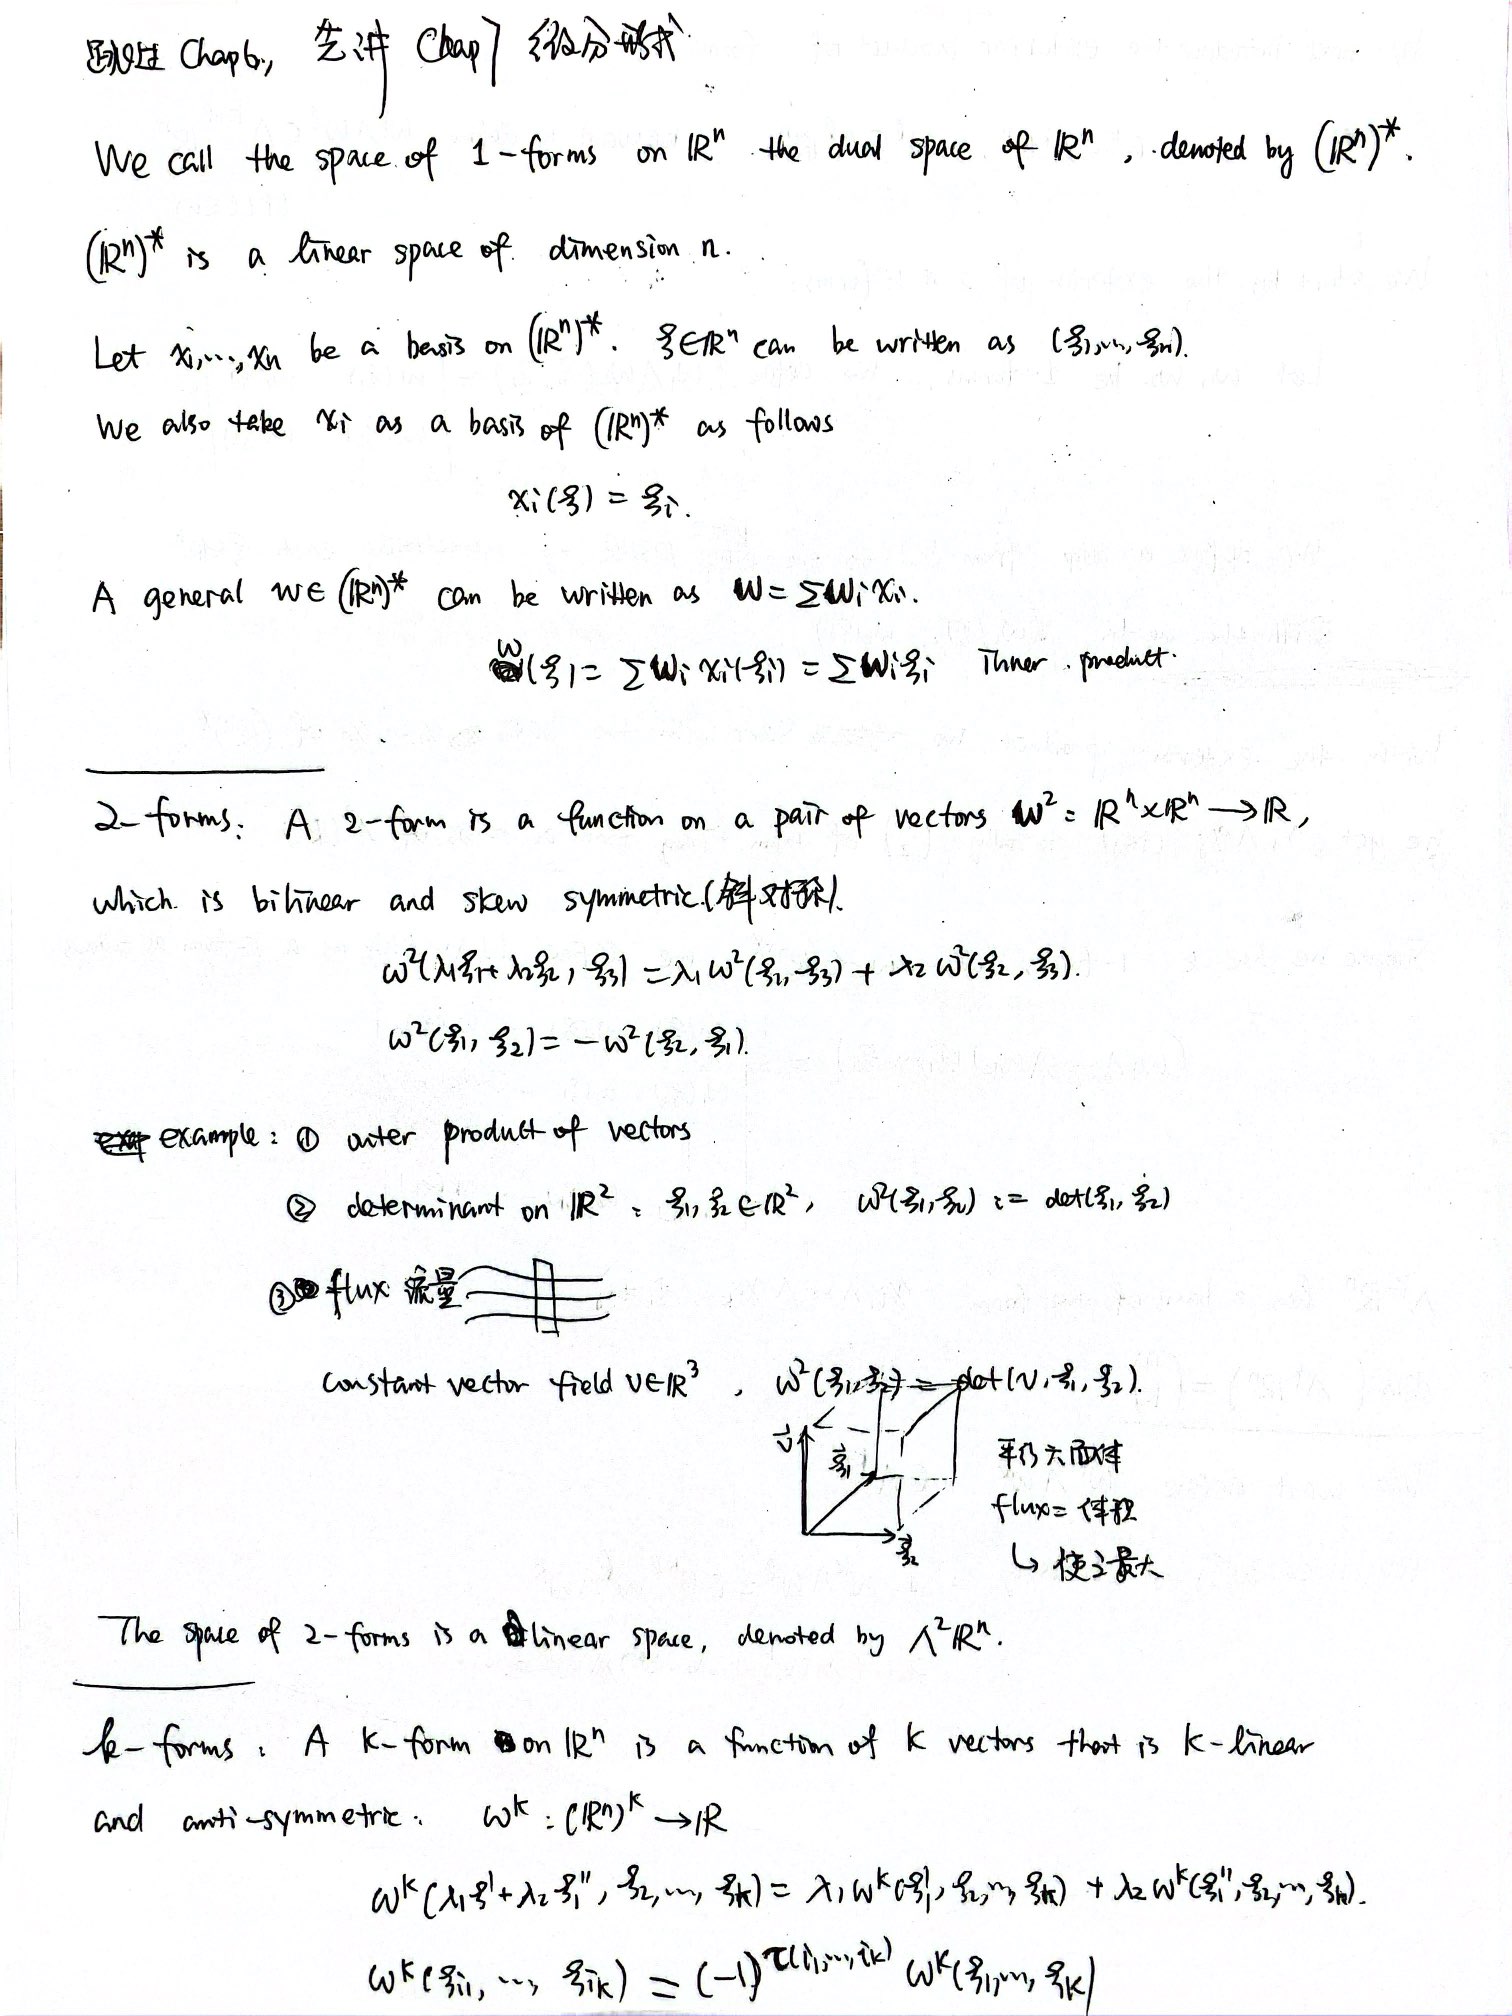 跳过 Chap6, 先讲 Chap7 微分形式
We call the space of 1-forms on ℝⁿ the dual space of ℝⁿ, denoted by (ℝⁿ)*.
(ℝⁿ)* is a linear space of dimension n.
Let x₁,…,xₙ be a basis on (ℝⁿ)*. ξ∈ℝⁿ can be written as (ξ₁,…,ξₙ).
We also take xᵢ as a basis of (ℝⁿ)* as follows
xᵢ(ξ) = ξᵢ.
A general w∈(ℝⁿ)* can be written as w=Σwᵢxᵢ.
w(ξ)= Σwᵢ xᵢ(ξᵢ) = Σwᵢξᵢ inner product.
2-forms: A 2-form is a function on a pair of vectors w² : ℝⁿ×ℝⁿ→ℝ,
which is bilinear and skew symmetric.(斜对称).
ω²(λ₁ξ₁+λ₂ξ₂, ξ₃) = λ₁ω²(ξ₁,ξ₃) + λ₂ω²(ξ₂, ξ₃).
ω²(ξ₁, ξ₂) = -ω²(ξ₂, ξ₁).
example: ① outer product of vectors
② determinant on ℝ² : ξ₁,ξ₂∈ℝ², ω²(ξ₁,ξ₂) := det(ξ₁, ξ₂)
③ flux 流量
constant vector field v∈ℝ³, ω²(ξ₁,ξ₂) = det(v,ξ₁,ξ₂).
v⃗ ξ⃗₁ 平行六面体
flux= 体积
ξ⃗₂ ↳ 使之最大
The space of 2-forms is a linear space, denoted by Λ²ℝⁿ.
k-forms: A k-form on ℝⁿ is a function of k vectors that is k-linear
and anti-symmetric: ωᵏ : (ℝⁿ)ᵏ→ℝ
ωᵏ(λ₁ξ₁'+λ₂ξ₁'', ξ₂,…, ξₖ) = λ₁ωᵏ(ξ₁', ξ₂,…, ξₖ) + λ₂ωᵏ(ξ₁'', ξ₂,…, ξₖ).
ωᵏ(ξᵢ₁, …, ξᵢₖ) = (-1)^τ(i₁,…,iₖ) ωᵏ(ξ₁,…, ξₖ)